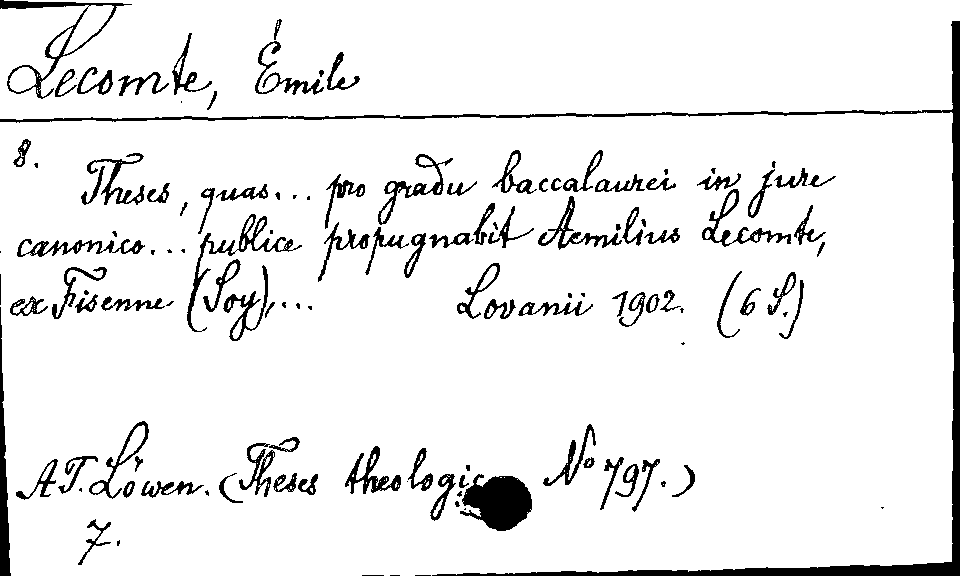 Lecomte, Émile
8.
Theses, quas... pro gradu baccalaurei in jure
canonico... publice propugnabit Aemilius Lecomte,
ex Fisenne (Soy),... Lovanii 1902. (6 S.)
AT. Löwen. (Theses theologic No 797.)
7.